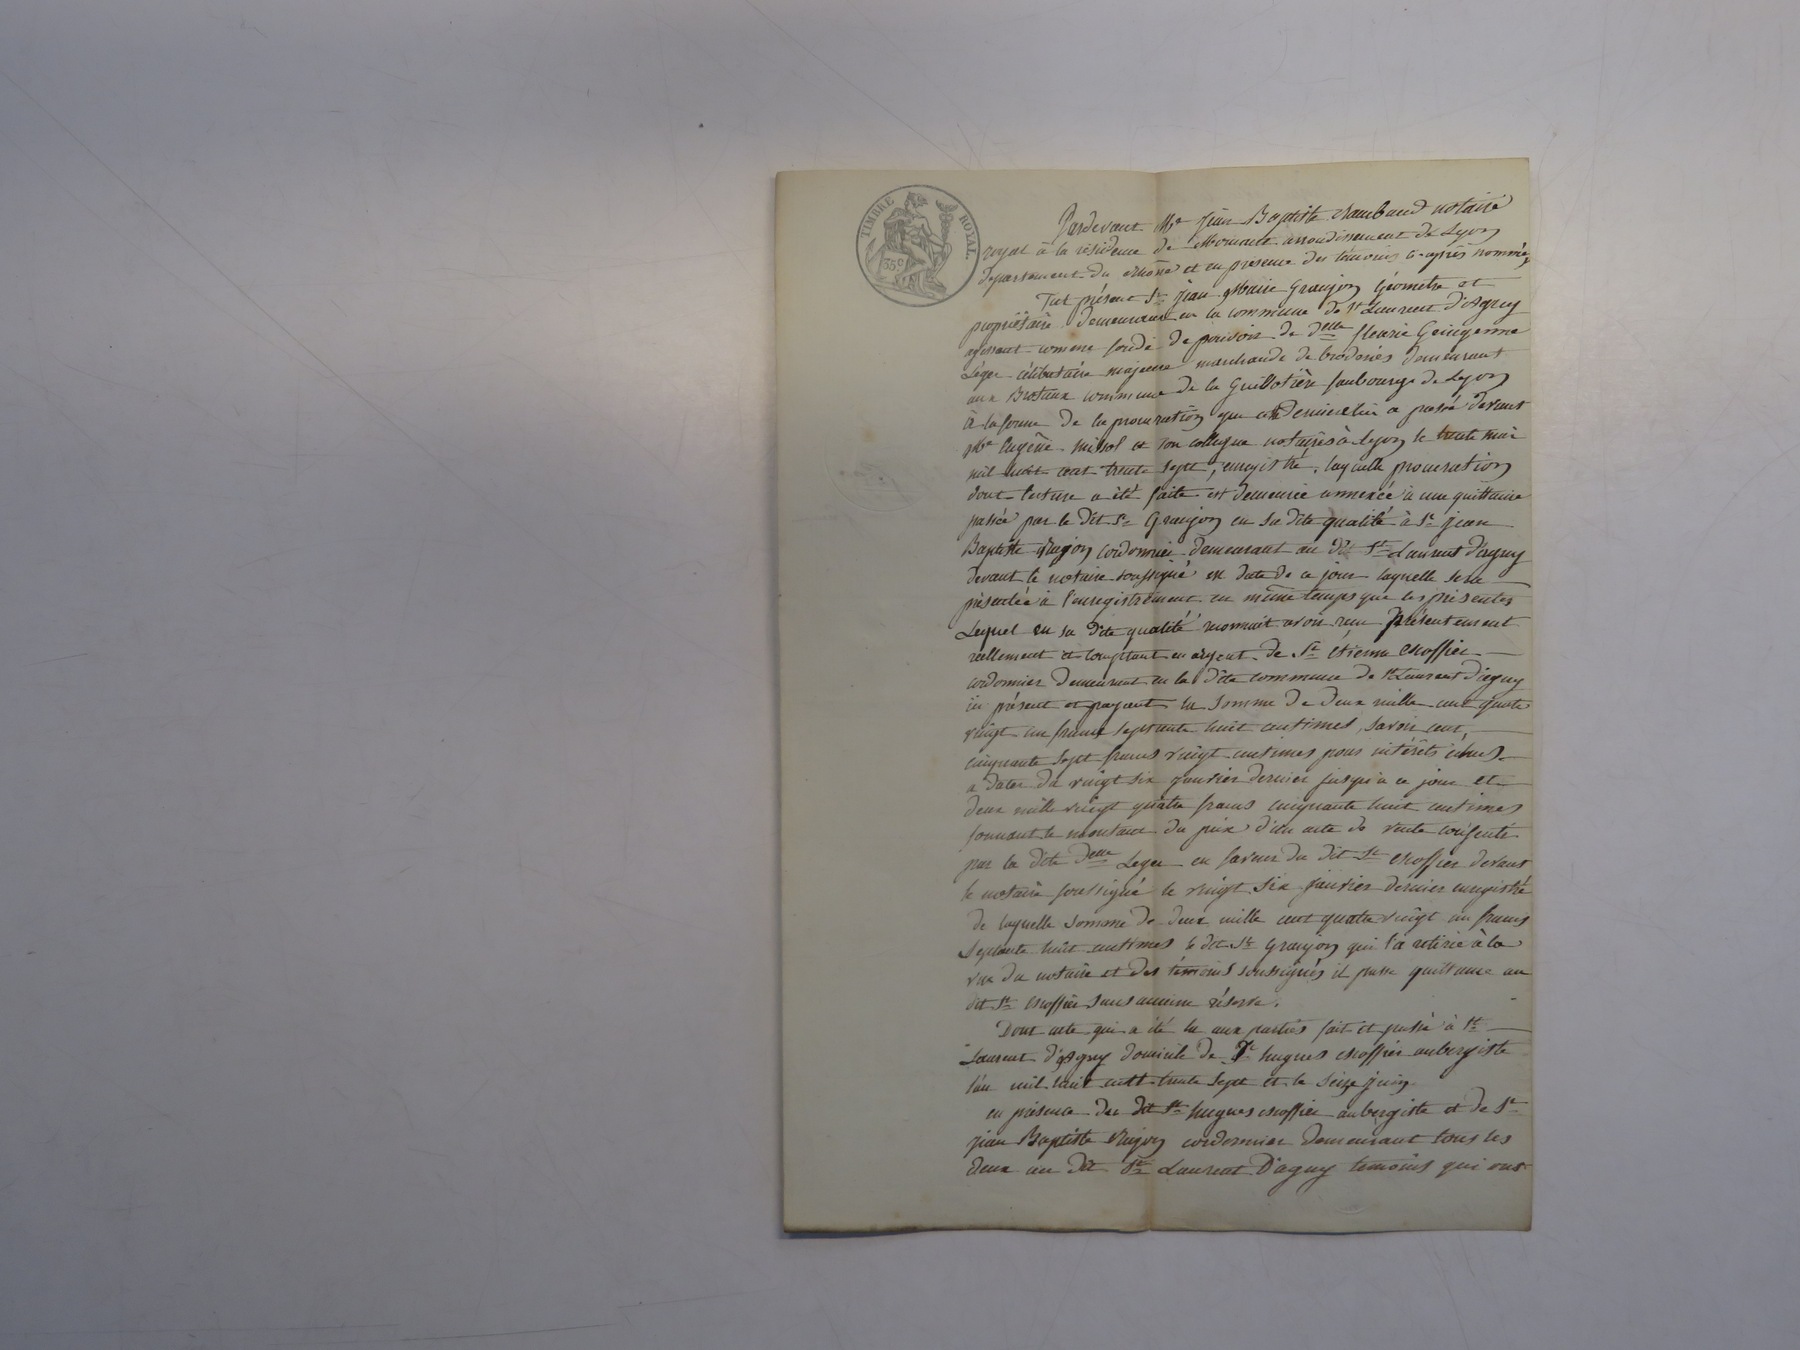 TIMBRE ROYAL.
35c
Pardevant Me Jean Baptiste Rambaud notaire
royal à la résidence de Mornant arrondissement de Lyon
département du Rhône et en présence des témoins ci-après nommés
Fut présent Sr Jean Marie Granjon Géomètre et
propriétaire demeurant en la commune de St Laurent d'Agny
agissant comme fondé de pouvoirs de delle fleurie
Léger célibataire majeure marchande de broderies demeurant
aux Broteaux commune de la Guillotière faubourg de Lyon
à la forme de la procuration que cette dernière lui a passé devant
Me Eugène et son collègue notaires à Lyon le trente mai
mil huit cent trente sept, enregistré, laquelle procuration
dont lecture a été faite est demeurée annexée à une quittance
passée par le dit Sr Granjon en sa dite qualité à Sr jean
Baptiste cordonnier demeurant au dit St Laurent d'agny
devant le notaire soussigné en date de ce jour laquelle sera
présentée à l'enregistrement en même temps que les présentes
Lequel en sa dite qualité reconnait avoir reçu Présentement
réellement et comptant en argent de Sr étienne Escoffier
cordonnier demeurant en la dite commune de St Laurent d'agny
ici présent et payant la somme de deux mille cent quatre
vingt un francs septante huit centimes, savoir cent
cinquante sept francs vingt centimes pour intérêts échus
a dater du vingt six janvier dernier jusqu'a ce jour et
deux mille vingt quatre francs cinquante huit centimes
formant le montant du prix d'un acte de vente consenti
par la dite delle Leger en faveur du dit Sr Escoffier devant
le notaire soussigné le vingt six janvier dernier enregistré
de laquelle somme de deux mille cent quatre vingt un francs
Septante huit centimes le dit Sr Granjon qui l'a retirée à la
vue du notaire et des témoins soussignés il passe quittance au
dit Sr Escoffier sans aucune réserve.
Dont acte qui a été lu aux parties fait et passé à St
Laurent d'Agny domicile de Sr hugues Escoffier aubergiste
l'an mil huit cent trente sept et le seize juin
en présence du dit Sr hugues Escoffier aubergiste et de Sr
jean Baptiste cordonnier demeurant tous les
deux au dit St Laurent D'agny temoins qui ont